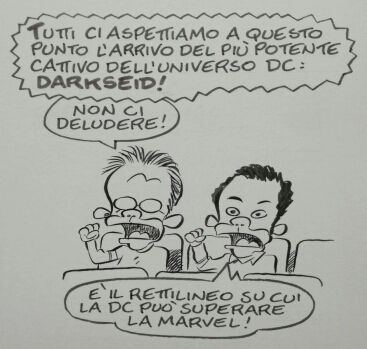 TUTTI CI ASPETTIAMO A QUESTO
PUNTO L'ARRIVO DEL PIÙ POTENTE
CATTIVO DELL'UNIVERSO DC:
DARKSEID!
NON CI
DELUDERE!
È IL RETTILINEO SU CUI
LA DC PUÒ SUPERARE
LA MARVEL!